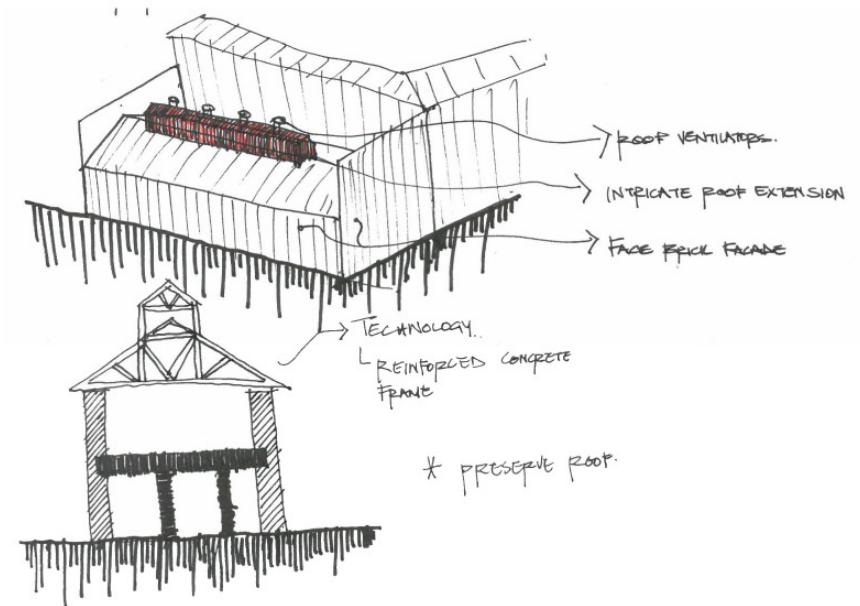 ROOF VENTILATORS.
INTRICATE ROOF EXTENSION
FACE BRICK FACADE
TECHNOLOGY..
REINFORCED CONCRETE
FRAME
* PRESERVE ROOF.